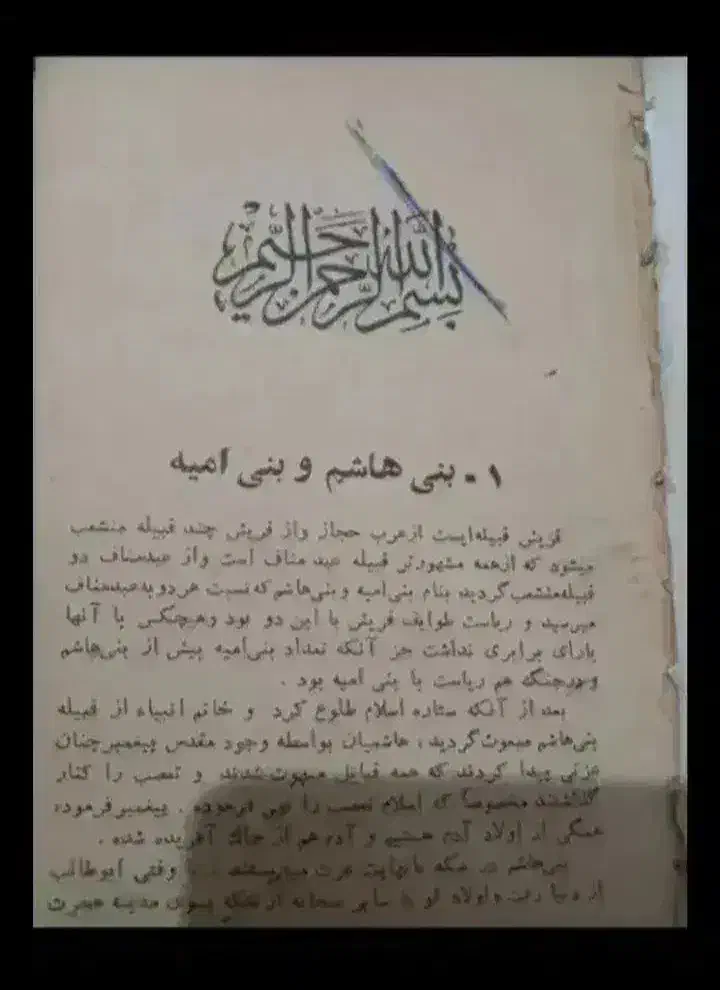 بسم الله الرحمن الرحیم
۱ - بنی هاشم و بنی امیه
قریش قبیله‌ایست ازعرب حجاز واز قریش چند قبیله منشعب
میشود که ازهمه مشهورتر قبیله عبد مناف است واز عبدمناف دو
قبیله‌منشعب‌گردید بنام بنی‌امیه و بنی‌هاشم که نسبت هردو به‌عبدمناف
میرسید و ریاست طوایف قریش با این دو بود وهیچکس با آنها
یارای برابری نداشت جز آنکه تعداد بنی‌امیه بیش از بنی‌هاشم
ودرجنگ هم ریاست با بنی امیه بود .
بعد از آنکه ستاره اسلام طلوع کرد و خاتم انبیاء از قبیله
بنی‌هاشم مبعوث گردید ، هاشمیان بواسطه وجود مقدس پیغمبرچنان
عزتی پیدا کردند که همه قبایل مبهوت شدند و تعصب را کنار
گذاشتند مخصوصاً که اسلام تعصب را نهی فرموده . پیغمبرفرموده
همگی از اولاد آدم هستیم و آدم هم از خاك آفریده شده .
بنی‌هاشم در مکه بانهایت عزت میزیستند وقتی ابوطالب
از دنیا رفت واولاد او با سایر صحابه از مکه بسوی مدینه هجرت